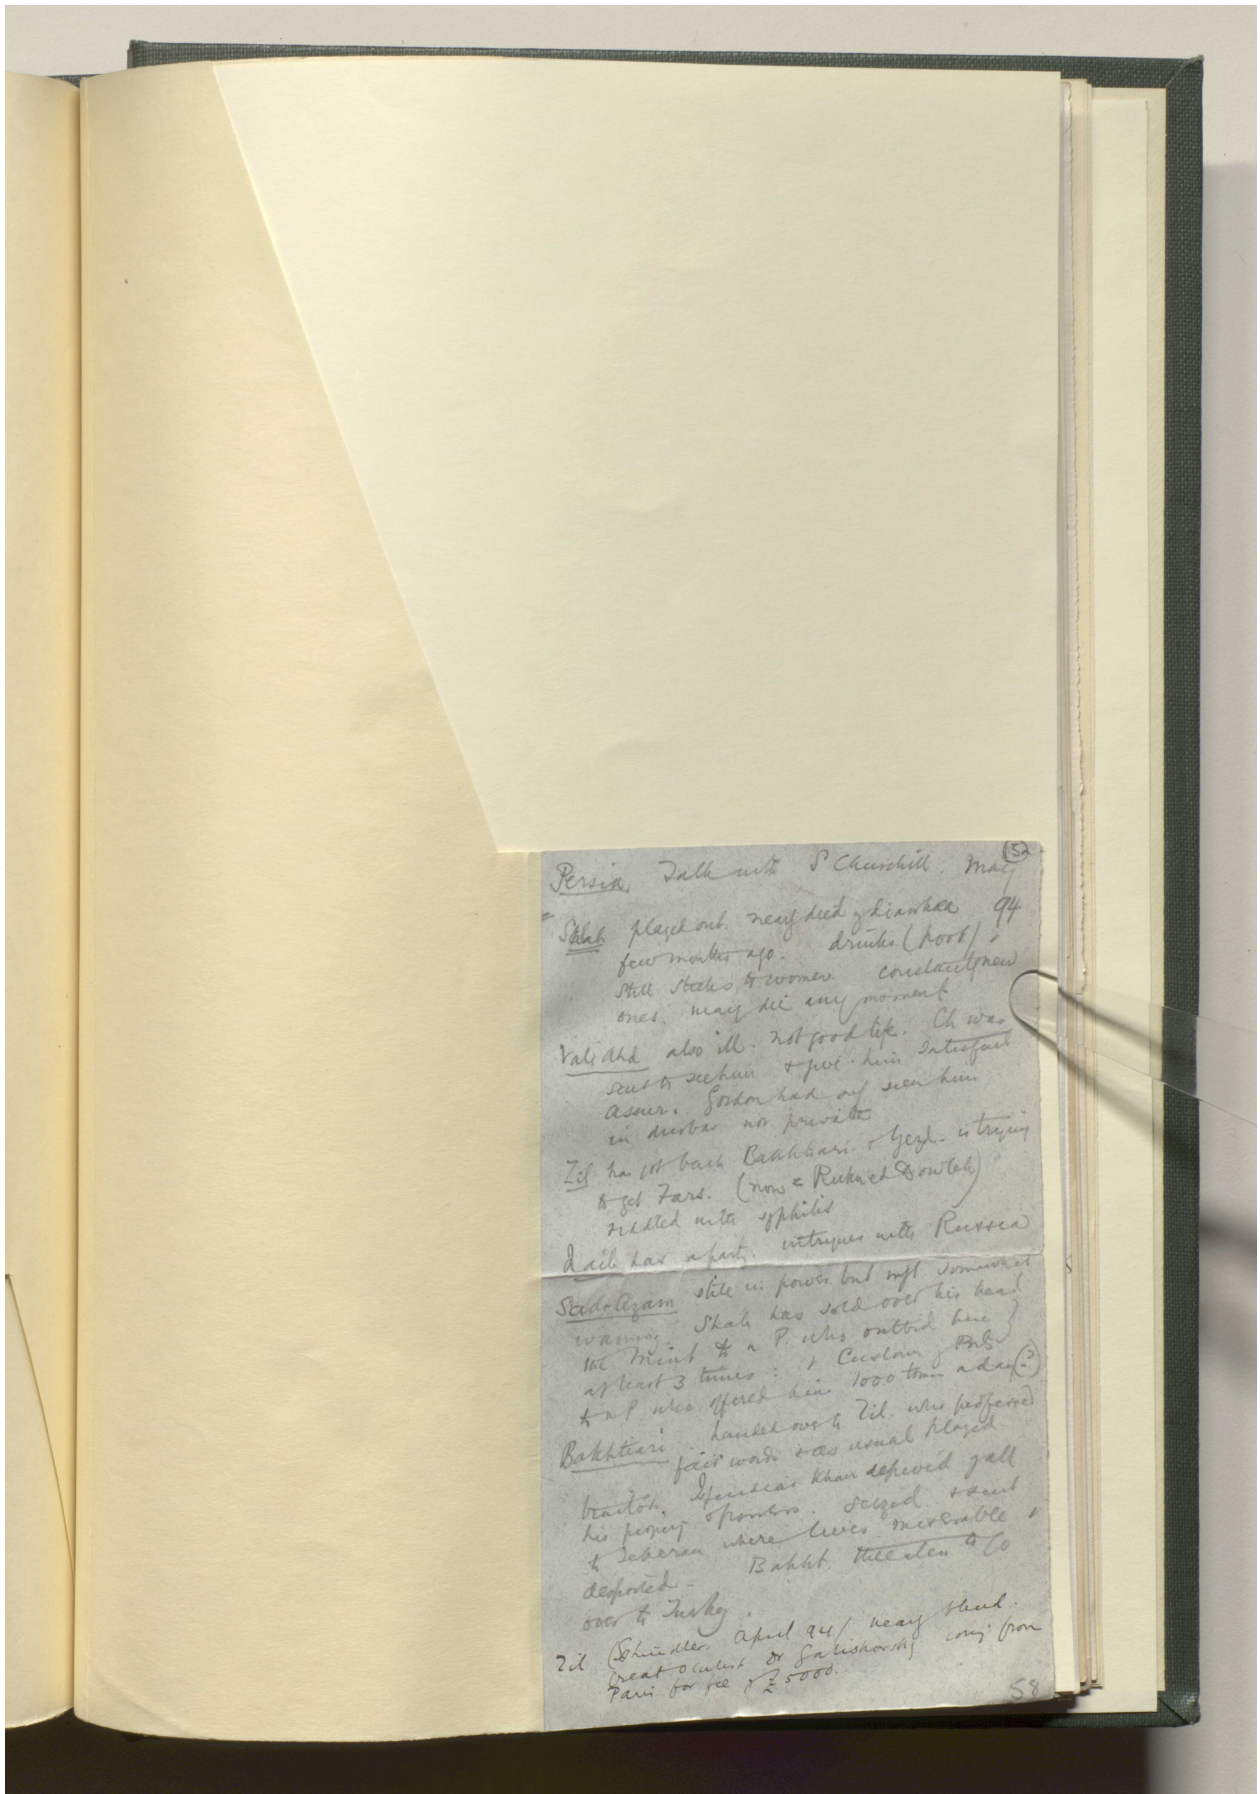 52
Persia. Talk with S Churchill. May
94
Shah played out. nearly died of diarrhea
few months ago. drinks (hoot) &
still sticks to women constantly new
ones. may die any moment
Vali Ahd also ill. not good life. Ch was
sent to see him & give him satisfact
assur. Gordon had only seen him
in durbar not private
Zil has got back Bakhtiari & Yezd. is trying
to get Fars. (now = Rukn ed Dowleh)
riddled with syphilis
Naib has a party. intrigues with Russia
Sadr Azam still in power but infl somewhat
waning. Shah has sold over his head
the Mint to a P. who outbid him
at least 3 times : & Customs
to a P. who offered him 1000 tom a day (?)
Bakhtiari. handed over to Zil. who professed
fair words & as usual played
traitor. Isfendiar Khan deprived of all
his property & powers. seized & sent
to Teheran where lives miserable &
deported. Bakht. threaten to Co
over to Turkey.
Zil (Schindler. April 94) nearly blind.
great oculist Dr Galezowsky comg from
Paris for fee of £5000.
58